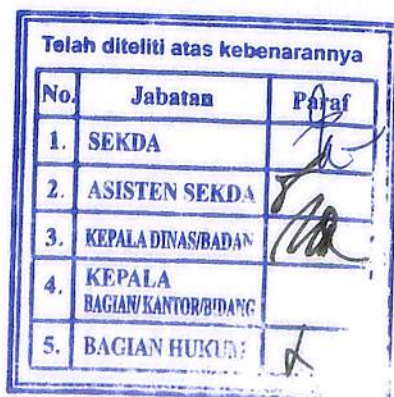 Telah diteliti atas kebenarannya
No. Jabatan Paraf
1. SEKDA
2. ASISTEN SEKDA
3. KEPALA DINAS/BADAN
4. KEPALA
BAGIAN/KANTOR/BIDANG
5. BAGIAN HUKUM